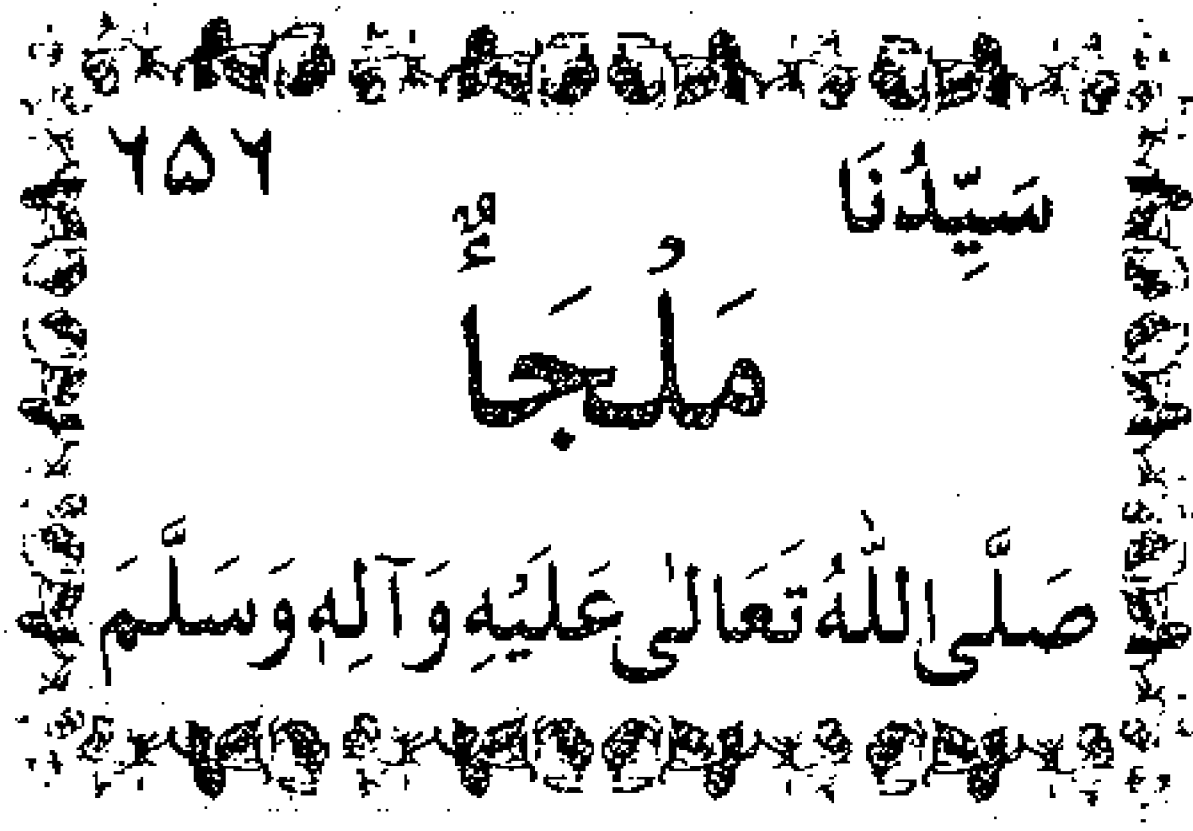 سَيِّدُنَا ۶۵۶
مَلْجَأٌ
صَلَّى اللّٰهُ تَعَالٰى عَلَيْهِ وَآلِهٖ وَسَلَّمَ